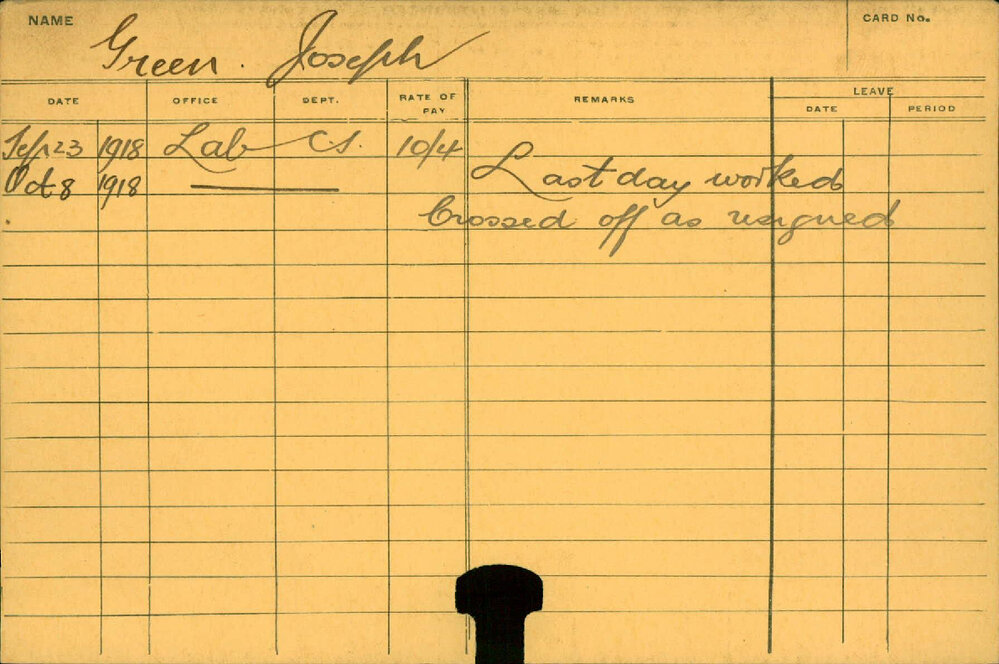 NAME
CARD No.
Green. Joseph
DATE OFFICE DEPT. RATE OF PAY REMARKS LEAVE
DATE PERIOD
Sep 23 1918 Lab C.S. 10/4
Oct 8 1918 Last day worked
Crossed off as resigned